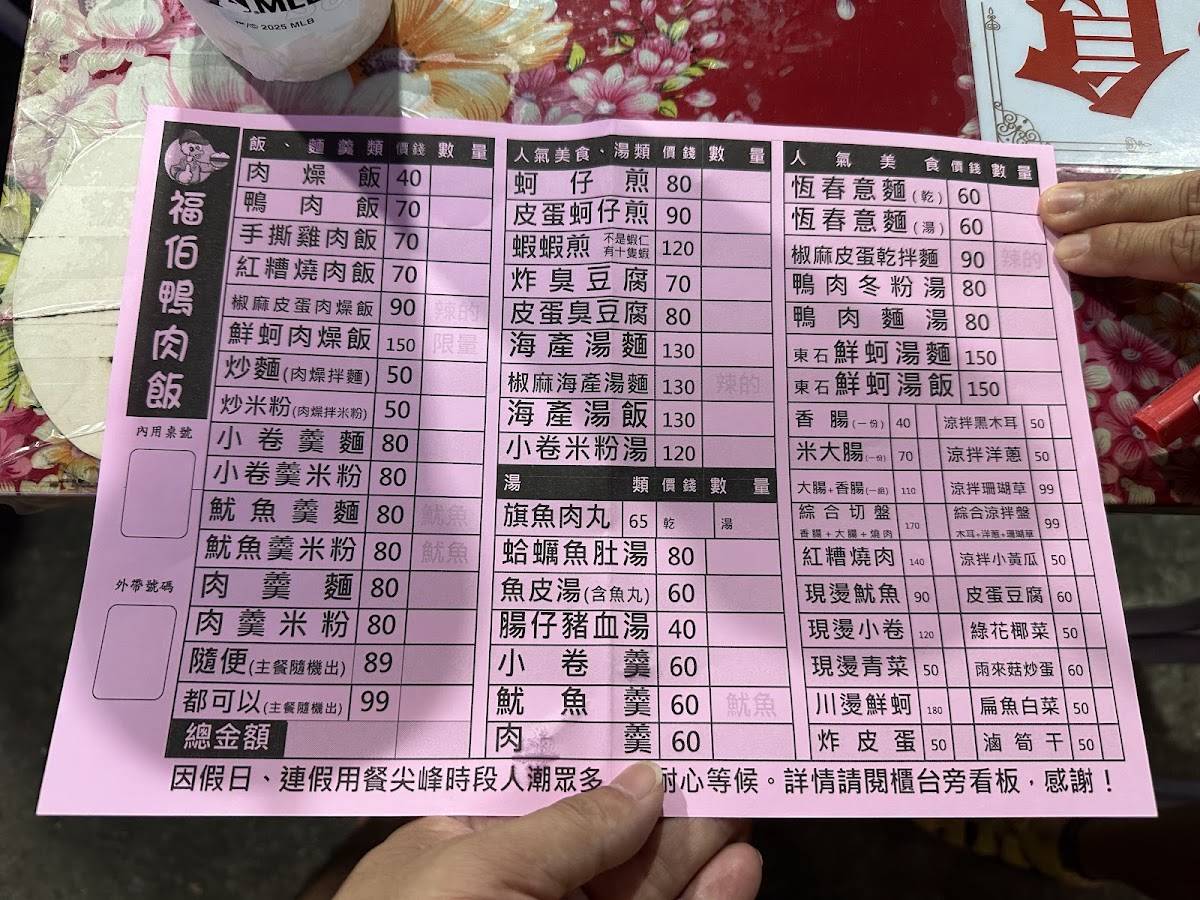 ™/© 2025 MLB
食
福伯鴨肉飯
內用桌號
外帶號碼
飯、麵羹類 價錢 數量
肉燥飯 40
鴨肉飯 70
手撕雞肉飯 70
紅糟燒肉飯 70
椒麻皮蛋肉燥飯 90 辣的
鮮蚵肉燥飯 150 限量
炒麵(肉燥拌麵) 50
炒米粉(肉燥拌米粉) 50
小卷羹麵 80
小卷羹米粉 80
魷魚羹麵 80 魷魚
魷魚羹米粉 80 魷魚
肉羹麵 80
肉羹米粉 80
隨便(主餐隨機出) 89
都可以(主餐隨機出) 99
總金額
人氣美食、湯類 價錢 數量
蚵仔煎 80
皮蛋蚵仔煎 90
蝦蝦煎 不是蝦仁 有十隻蝦 120
炸臭豆腐 70
皮蛋臭豆腐 80
海產湯麵 130
椒麻海產湯麵 130 辣的
海產湯飯 130
小卷米粉湯 120
湯類 價錢 數量
旗魚肉丸 65 乾 湯
蛤蠣魚肚湯 80
魚皮湯(含魚丸) 60
腸仔豬血湯 40
小卷羹 60
魷魚羹 60 魷魚
肉羹 60
人氣美食 價錢 數量
恆春意麵(乾) 60
恆春意麵(湯) 60
椒麻皮蛋乾拌麵 90 辣的
鴨肉冬粉湯 80
鴨肉麵湯 80
東石鮮蚵湯麵 150
東石鮮蚵湯飯 150
香腸(一份) 40 涼拌黑木耳 50
米大腸(一份) 70 涼拌洋蔥 50
大腸+香腸(一組) 110 涼拌珊瑚草 99
綜合切盤 香腸+大腸+燒肉 170 綜合涼拌盤 木耳+洋蔥+珊瑚草 99
紅糟燒肉 140 涼拌小黃瓜 50
現燙魷魚 90 皮蛋豆腐 60
現燙小卷 120 綠花椰菜 50
現燙青菜 50 雨來菇炒蛋 60
川燙鮮蚵 180 扁魚白菜 50
炸皮蛋 50 滷筍干 50
因假日、連假用餐尖峰時段人潮眾多 耐心等候。詳情請閱櫃台旁看板，感謝！